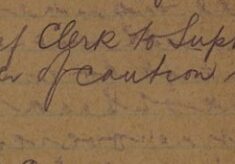 of Clerk to Supt
of caution